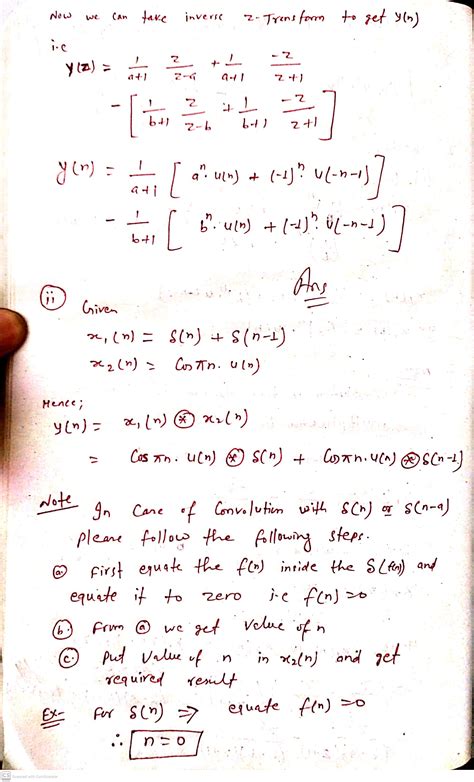 Now we can take inverse z-Transform to get y(n)
i.e
Y(z) = 1/(a+1) z/(z-a) + 1/(a+1) -z/(z+1)
- [ 1/(b+1) z/(z-b) + 1/(b+1) -z/(z+1) ]
y(n) = 1/(a+1) [ aⁿ. u(n) + (-1)ⁿ. u(-n-1) ]
- 1/(b+1) [ bⁿ. u(n) + (-1)ⁿ. u(-n-1) ]
Ans
(ii) Given
x₁(n) = δ(n) + δ(n-1)
x₂(n) = Cos πn. u(n)
Hence;
y(n) = x₁(n) ⊛ x₂(n)
= Cos πn. u(n) ⊛ δ(n) + Cos πn. u(n) ⊛ δ(n-1)
Note In Case of Convolution with δ(n) or δ(n-a)
please follow the following steps.
(a) first equate the f(n) inside the δ(f(n)) and
equate it to zero i.e f(n)=0
(b.) From (a) we get value of n
(c.) Put value of n in x₂(n) and get
required result
Ex- for δ(n) ⇒ equate f(n) = 0
∴ n=0
CS Scanned with CamScanner